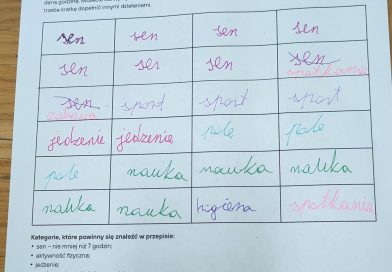 trzeba kratkę dopełnić innymi działaniami.
sen sen sen sen
sen sen sen sen spotkanie
sen zabawa sport sport sport
jedzenie jedzenie pole pole
pole nauka nauka nauka
nauka nauka higiena spotkania
Kategorie, które powinny się znaleźć w przepisie:
• sen – nie mniej niż 7 godzin;
• aktywność fizyczna;
• jedzenie;